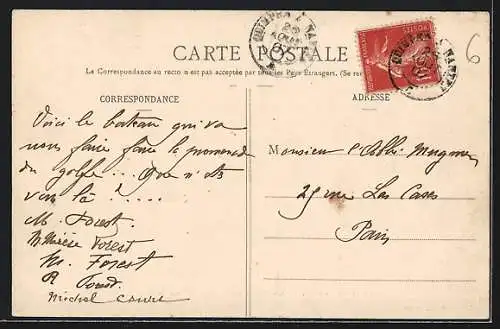 CARTE POSTALE
La Correspondance au recto n'est pas acceptée par tous les Pays Étrangers. (Se
CORRESPONDANCE
ADRESSE
6
Voici le bateau qui va
nous faire faire la promenade
du golfe... Que n'êtes
vous là ? ...
M. Forest
Forest
M. Forest
R Forest
Michel
Monsieur l'Abbé Mugnier
25 rue Las Cases
Paris
QUIMPER A NANTES
POSTES
10